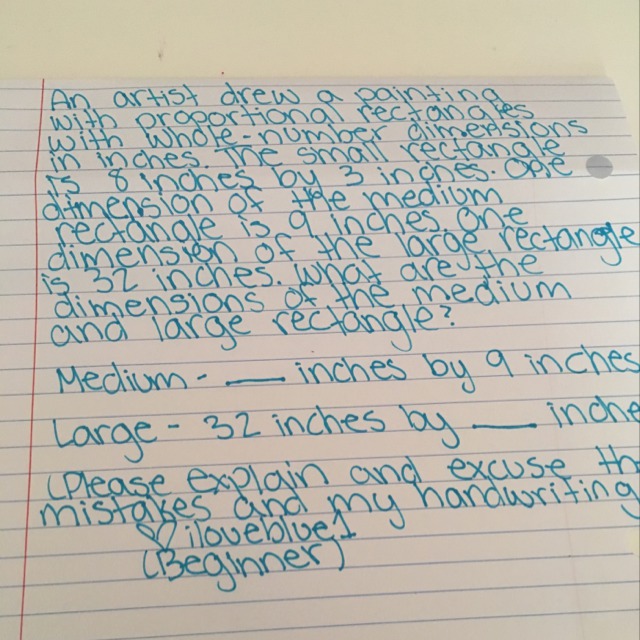 An artist drew a painting
with proportional rectangles
with whole-number dimensions
in inches. The small rectangle
is 8 inches by 3 inches. One
dimension of the medium
rectangle is 9 inches. One
dimension of the large rectangle
is 32 inches. What are the
dimensions of the medium
and large rectangle?
Medium - ___ inches by 9 inches
Large - 32 inches by ___ inche
(Please explain and excuse th
mistakes and my handwriting
♡ iloveblue1
(Beginner)